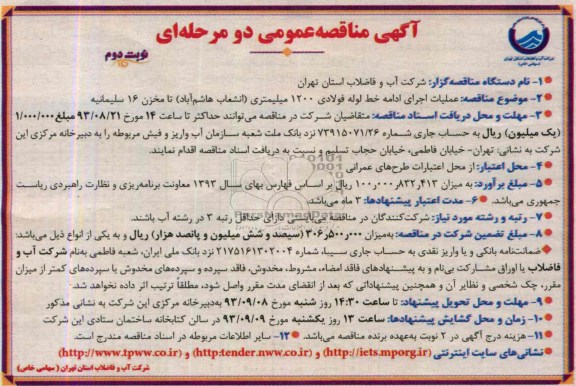 آگهی مناقصه‌عمومی دو مرحله‌ای
نوبت دوم
شرکت آب و فاضلاب استان تهران
(سهامی خاص)
۱- نام دستگاه مناقصه‌گزار: شرکت آب و فاضلاب استان تهران
۲- موضوع مناقصه: عملیات اجرای ادامه خط لوله فولادی ۱۲۰۰ میلیمتری (انشعاب هاشم‌آباد) تا مخزن ۱۶ سلیمانیه
۳- مهلت و محل دریافت اسناد مناقصه: متقاضیان شرکت در مناقصه می‌توانند حداکثر تا ساعت ۱۴ مورخ ۹۳/۰۸/۲۱ مبلغ ۱/۰۰۰/۰۰۰
(یک میلیون) ریال به حساب جاری شماره ۷۳۹۱۵۰۷۱/۲۶ نزد بانک ملت شعبه سازمان آب واریز و فیش مربوطه را به دبیرخانه مرکزی این
شرکت به نشانی: تهران- خیابان فاطمی، خیابان حجاب تسلیم و نسبت به دریافت اسناد مناقصه اقدام نمایند.
۴- محل اعتبار: از محل اعتبارات طرح‌های عمرانی
۵- مبلغ برآورد: به میزان ۱۰۰,۰۰۰,۸۳۲,۴۱۳ ریال بر اساس فهارس بهای سال ۱۳۹۳ معاونت برنامه‌ریزی و نظارت راهبردی ریاست
جمهوری می‌باشد. ۶- مدت اعتبار پیشنهادها: ۳ ماه می‌باشد.
۷- رتبه و رشته مورد نیاز: شرکت‌کنندگان در مناقصه می‌بایستی دارای حداقل رتبه ۳ در رشته آب باشند.
۸- مبلغ تضمین شرکت در مناقصه: به‌میزان ۳۰۶,۵۰۰,۰۰۰ (سیصد و شش میلیون و پانصد هزار) ریال و به یکی از انواع ذیل می‌باشد:
ضمانت‌نامه بانکی و یا واریز نقدی به حساب جاری سیبا، شماره ۲۱۷۵۱۶۱۳۰۲۰۰۴ نزد بانک ملی ایران، شعبه فاطمی به‌نام شرکت آب و
فاضلاب یا اوراق مشارکت بی‌نام و به پیشنهادهای فاقد امضاء، مشروط، مخدوش، فاقد سپرده و سپرده‌های مخدوش یا سپرده‌های کمتر از میزان
مقرر، چک شخصی و نظایر آن و همچنین پیشنهاداتی که بعد از انقضای مدت مقرر واصل شود، مطلقاً ترتیب اثر داده نخواهد شد.
۹- مهلت و محل تحویل پیشنهاد: تا ساعت ۱۴:۳۰ روز شنبه مورخ ۹۳/۰۹/۰۸ به‌دبیرخانه مرکزی این شرکت به نشانی مذکور
۱۰- زمان و محل گشایش پیشنهادها: ساعت ۱۳ روز یکشنبه مورخ ۹۳/۰۹/۰۹ در سالن کتابخانه ساختمان ستادی این شرکت
۱۱- هزینه درج آگهی در ۲ نوبت به‌عهده برنده مناقصه می‌باشد. ۱۲- سایر اطلاعات مربوطه در اسناد مناقصه مندرج است.
نشانی‌های سایت اینترنتی (http://iets.mporg.ir) و (http:tender.nww.co.ir) و (http://www.tpww.co.ir)
شرکت آب و فاضلاب استان تهران ( سهامی خاص)